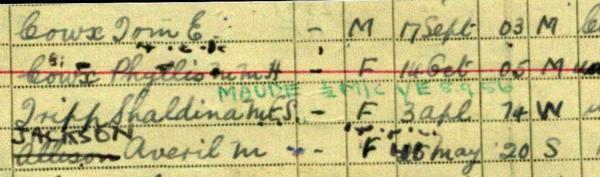 Cowx Tom E. - M 17 Sept 03 M
Cowx Phyllis M H - F 14 Oct 05 M
MAUDE
Tripp Shaldina M.E.S. - F 3 Apl 74 W
JACKSON
Allison Averil M - F May 20 S